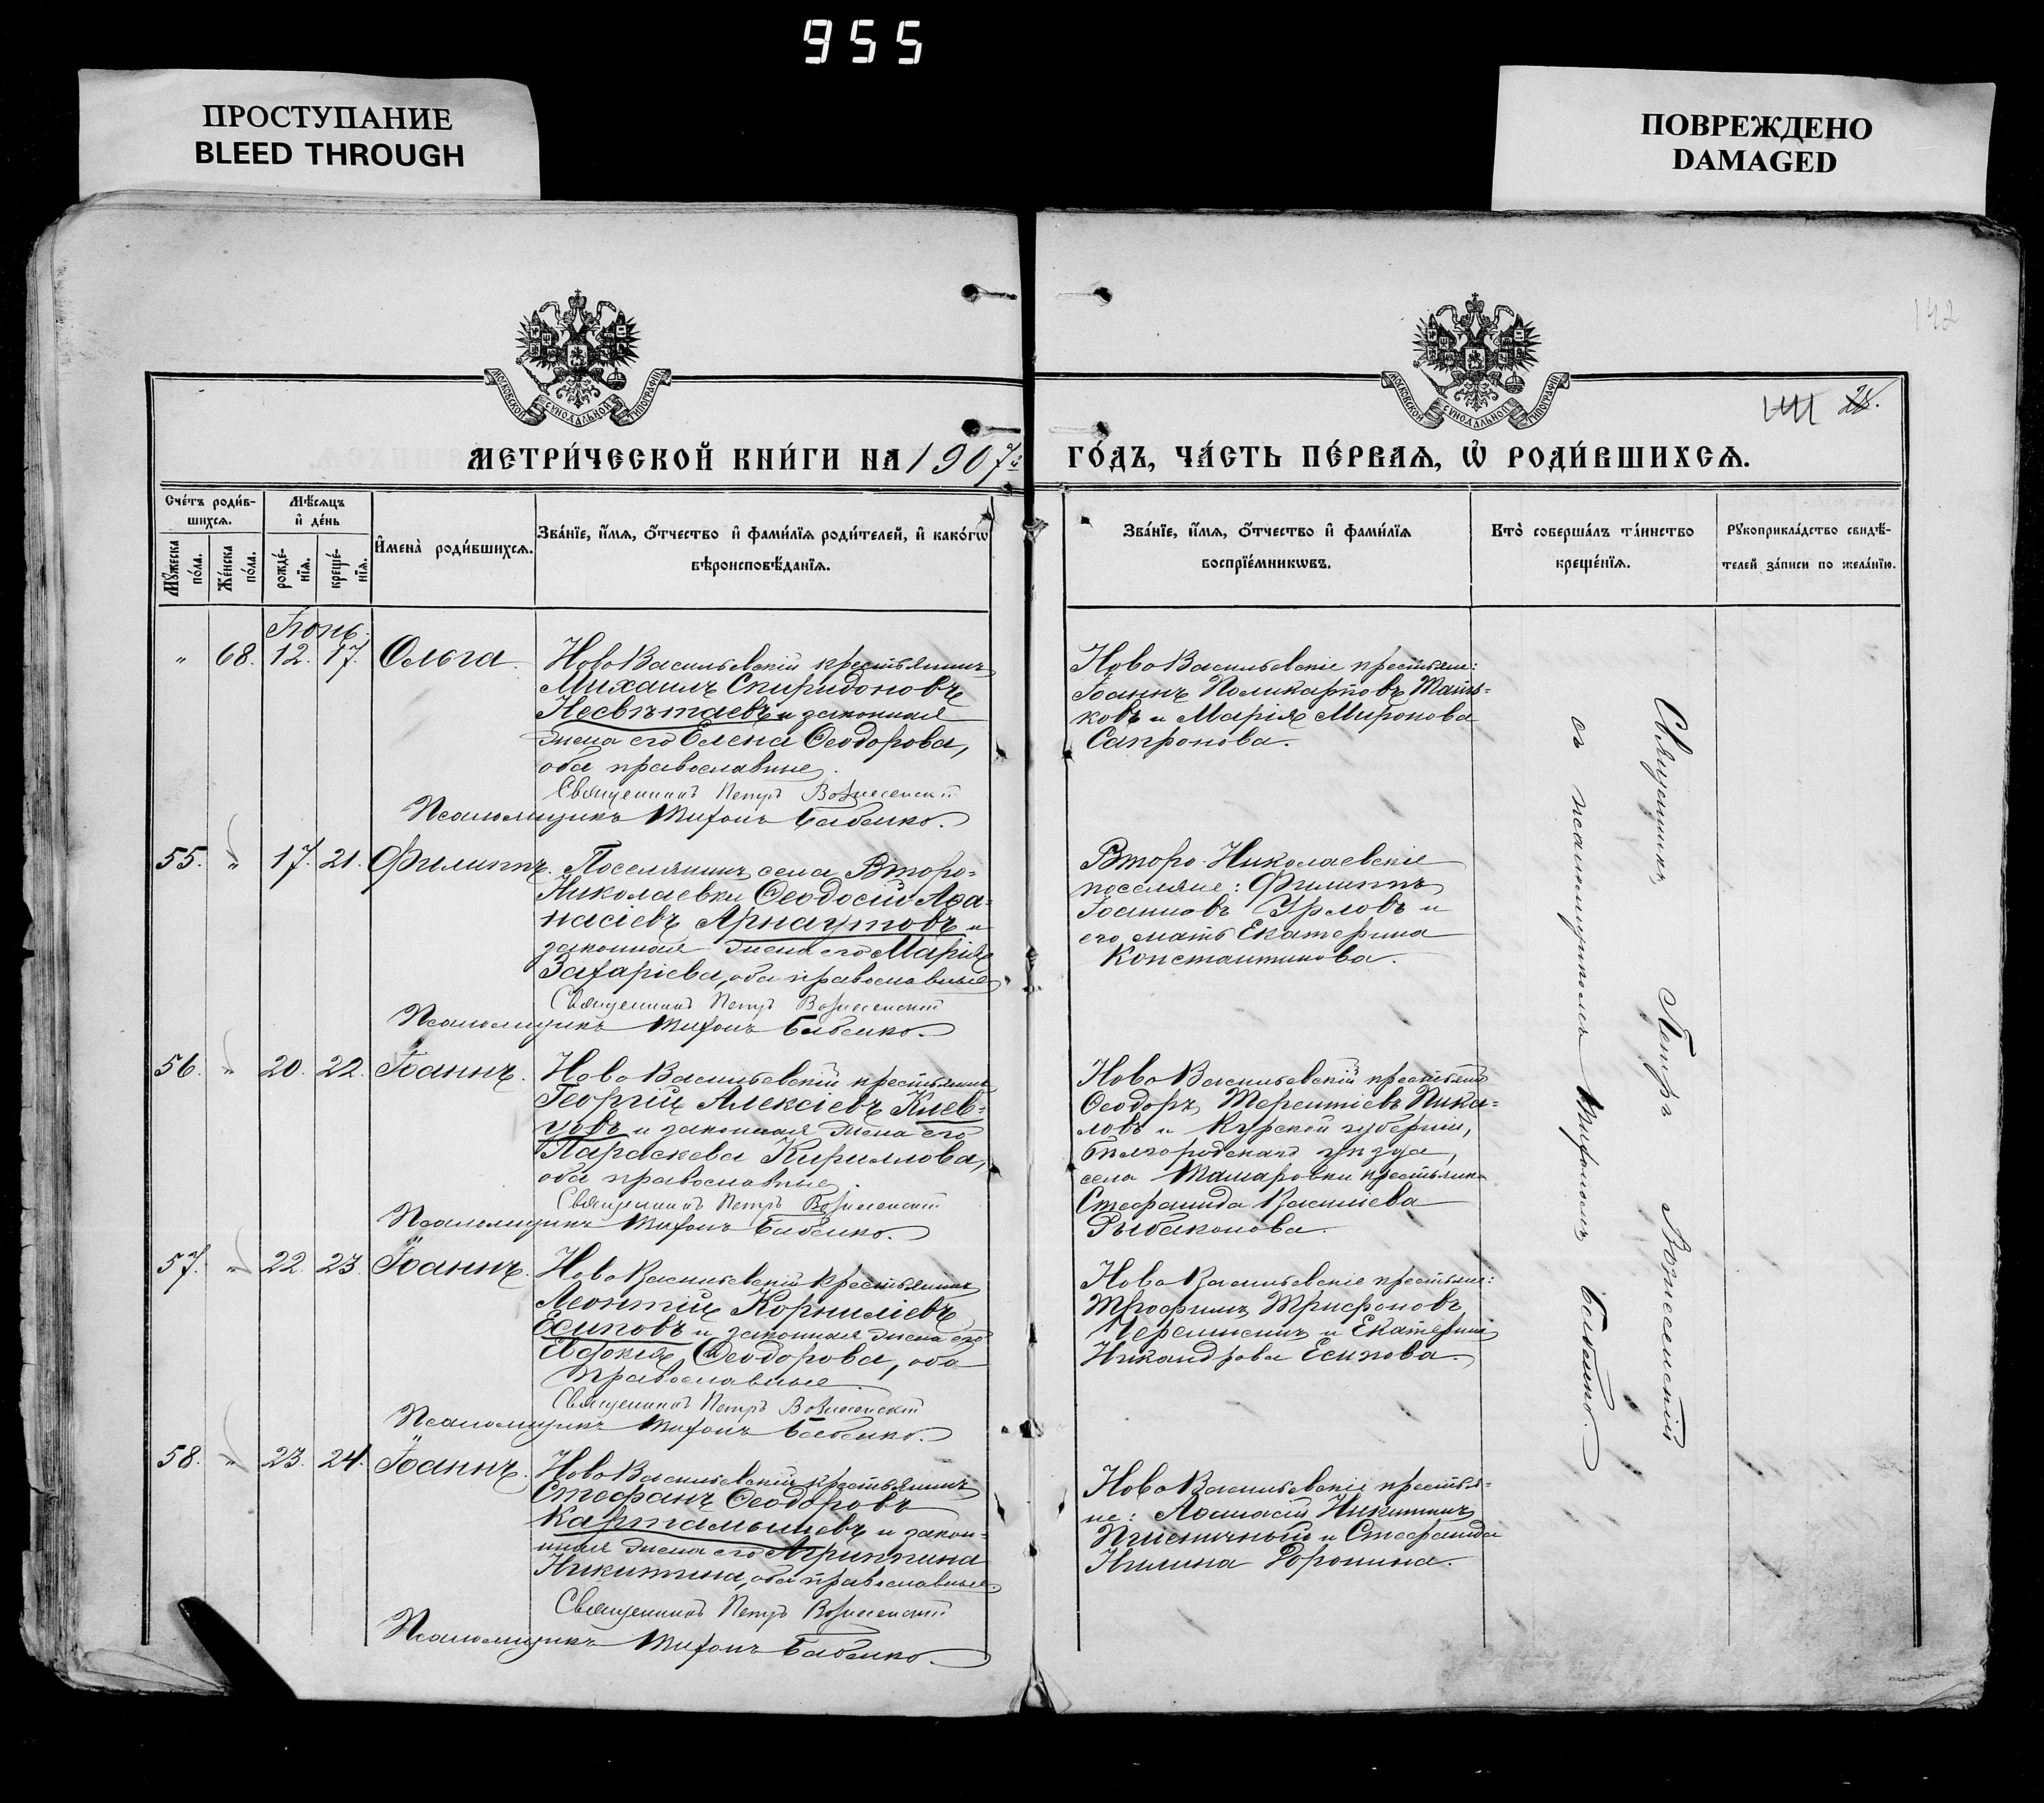 955
ПРОСТУПАНИЕ
BLEED THROUGH
ПОВРЕЖДЕНО
DAMAGED
142
141 28.
МОСКОВСКОЙ СУНОДАЛЬНОЙ ТИПОГРАФІИ
МОСКОВСКОЙ СУНОДАЛЬНОЙ ТИПОГРАФІИ
МЕТРИ́ЧЕСКОЙ КНИ́ГИ НА 1907й
ГО́ДЪ, ЧА́СТЬ ПЕ́РВАЯ, Ѡ҆ РОДИ́ВШИХСЯ.
Сче́тъ роди́в-
шихся.
Мѣ́сяцъ
и҆ де́нь
Мꙋ́жеска по́ла.
Же́нска по́ла.
рожде́-
нїя.
креще́-
нїя.
И҆мена̀ роди́вшихся.
Зва́нїе, и҆́мя, ѻ҆́тчество и҆ фами́лїя роди́телей, и҆ како́гѡ
вѣроисповѣ́данїя.
Зва́нїе, и҆́мя, ѻ҆́тчество и҆ фами́лїя
воспрїе́мникѡвъ.
Кто̀ соверша́лъ та́инство
креще́нїя.
Рꙋкоприкла́дство свидѣ́-
телей за́писи по жела́нїю.
Іюнь.
" 68. 12. 17. Ольга.
НовоВасильевскій крестьянинъ
Михаилъ Спиридоновъ
Несвѣтаевъ и законная
жена его Елена Ѳеодорова,
оба православные.
Священникъ Петръ Вознесенскій
Псаломщикъ Тихонъ Бабенко.
НовоВасильевскіе крестьяне:
Іоаннъ Поликарповъ
и Марія Миронова
Сапронова.
55. " 17. 21. Филиппъ.
Поселянинъ села Второ-
Николаевки Ѳеодосій Аѳа-
насіевъ Арнаутовъ и
законная жена его Марія
Захаріева, оба православные
Священникъ Петръ Вознесенскій
Псаломщикъ Тихонъ Бабенко.
Второ-Николаевскіе
поселяне: Филиппъ
Іоанновъ Урловъ и
его мать Екатерина
Константинова.
56. " 20. 22. Іоаннъ.
НовоВасильевскій крестьянинъ
Георгій Алексіевъ Киев-
цовъ и законная жена его
Параскева Кириллова,
оба православные.
Священникъ Петръ Вознесенскій
Псаломщикъ Тихонъ Бабенко.
НовоВасильевскій крестьянинъ
Ѳеодоръ Терентіевъ Пика-
ловъ и Курской губерніи,
Бѣлгородскаго уѣзда,
села Томаровки крестьянка
Стефанида Василіева
Рыбаконова.
57. " 22. 23. Іоаннъ.
НовоВасильевскій крестьянинъ
Леонтій Корниліевъ
Есиповъ и законная жена его
Евдокія Ѳеодорова, оба
православные.
Священникъ Петръ Вознесенскій
Псаломщикъ Тихонъ Бабенко.
НовоВасильевскіе крестьяне:
Трофимъ Трифоновъ
и Екатерина
Никандрова Есипова.
58. " 23. 24. Іоаннъ.
НовоВасильевскій крестьянинъ
Стефанъ Ѳеодоровъ
Картамышевъ и закон-
ная жена его Агриппина
Никитина, оба православные.
Священникъ Петръ Вознесенскій
Псаломщикъ Тихонъ Бабенко.
НовоВасильевскіе крестья-
не: Аѳанасій Никитинъ
Пшеничный и Стефанида
Доронина.
Священникъ Петръ Вознесенскій
съ псаломщикомъ Тихономъ Бабенко.